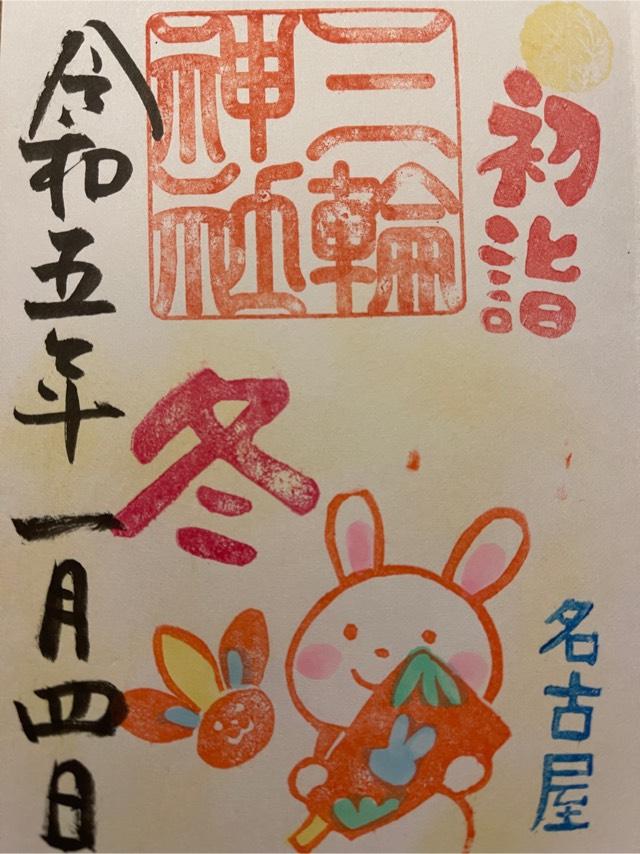 初詣
三輪
神社
冬
名古屋
令和五年一月四日